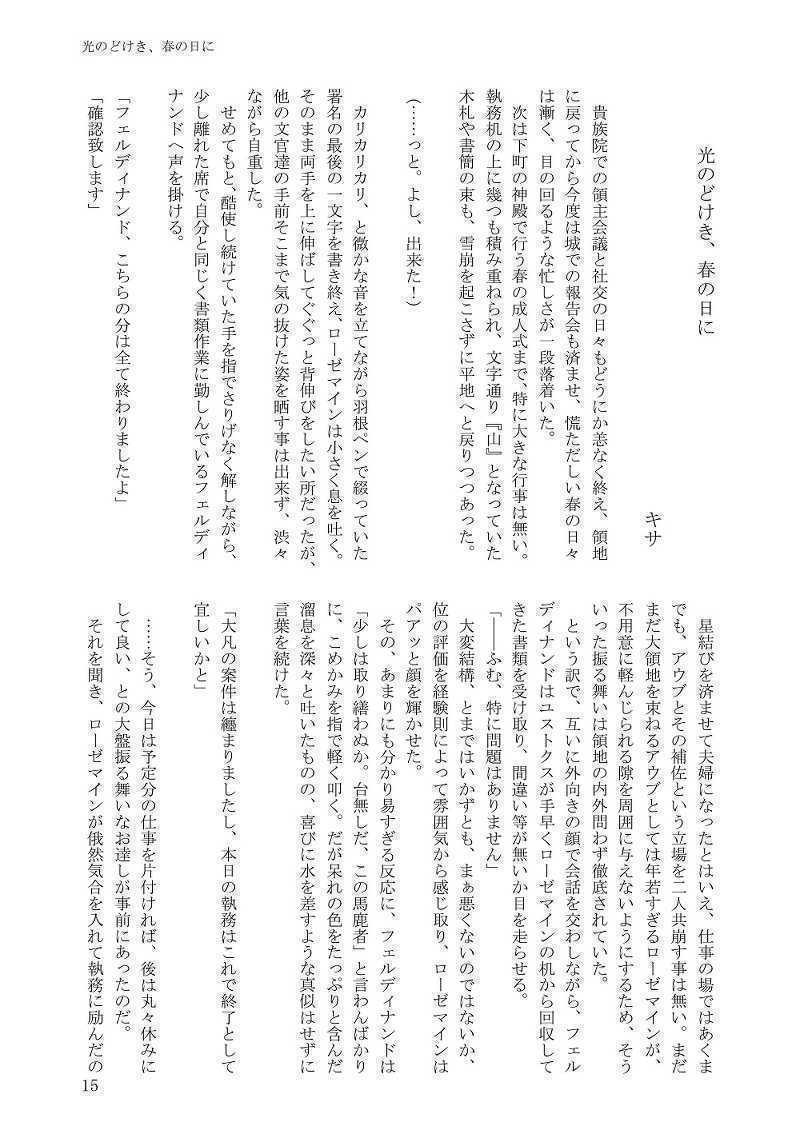 光のどけき、春の日に
光のどけき、春の日に
キサ
貴族院での領主会議と社交の日々もどうにか恙なく終え、領地
に戻ってから今度は城での報告会も済ませ、慌ただしい春の日々
は漸く、目の回るような忙しさが一段落着いた。
次は下町の神殿で行う春の成人式まで、特に大きな行事は無い。
執務机の上に幾つも積み重ねられ、文字通り『山』となっていた
木札や書簡の束も、雪崩を起こさずに平地へと戻りつつあった。
(……っと。よし、出来た！)
カリカリカリ、と微かな音を立てながら羽根ペンで綴っていた
署名の最後の一文字を書き終え、ローゼマインは小さく息を吐く。
そのまま両手を上に伸ばしてぐぐっと背伸びをしたい所だったが、
他の文官達の手前そこまで気の抜けた姿を晒す事は出来ず、渋々
ながら自重した。
せめてもと、酷使し続けていた手を指でさりげなく解しながら、
少し離れた席で自分と同じく書類作業に勤しんでいるフェルディ
ナンドへ声を掛ける。
「フェルディナンド、こちらの分は全て終わりましたよ」
「確認致します」
星結びを済ませて夫婦になったとはいえ、仕事の場ではあくま
でも、アウブとその補佐という立場を二人共崩す事は無い。まだ
まだ大領地を束ねるアウブとしては年若すぎるローゼマインが、
不用意に軽んじられる隙を周囲に与えないようにするため、そう
いった振る舞いは領地の内外問わず徹底されていた。
という訳で、互いに外向きの顔で会話を交わしながら、フェル
ディナンドはユストクスが手早くローゼマインの机から回収して
きた書類を受け取り、間違い等が無いか目を走らせる。
「――ふむ、特に問題はありません」
大変結構、とまではいかずとも、まぁ悪くないのではないか、
位の評価を経験則によって雰囲気から感じ取り、ローゼマインは
パアッと顔を輝かせた。
その、あまりにも分かり易すぎる反応に、フェルディナンドは
「少しは取り繕わぬか。台無しだ、この馬鹿者」と言わんばかり
に、こめかみを指で軽く叩く。だが呆れの色をたっぷりと含んだ
溜息を深々と吐いたものの、喜びに水を差すような真似はせずに
言葉を続けた。
「大凡の案件は纏まりましたし、本日の執務はこれで終了として
宜しいかと」
……そう、今日は予定分の仕事を片付ければ、後は丸々休みに
して良い、との大盤振る舞いなお達しが事前にあったのだ。
それを聞き、ローゼマインが俄然気合を入れて執務に励んだの
15